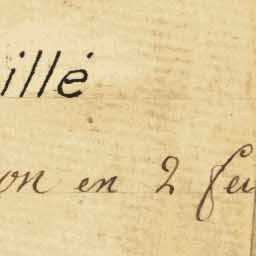 illé
on en 2 feu